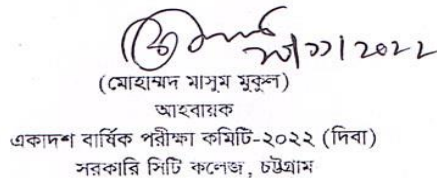 (মোহাম্মদ মাসুম মুকুল)
আহবায়ক
একাদশ বার্ষিক পরীক্ষা কমিটি-২০২২ (দিবা)
সরকারি সিটি কলেজ, চট্টগ্রাম